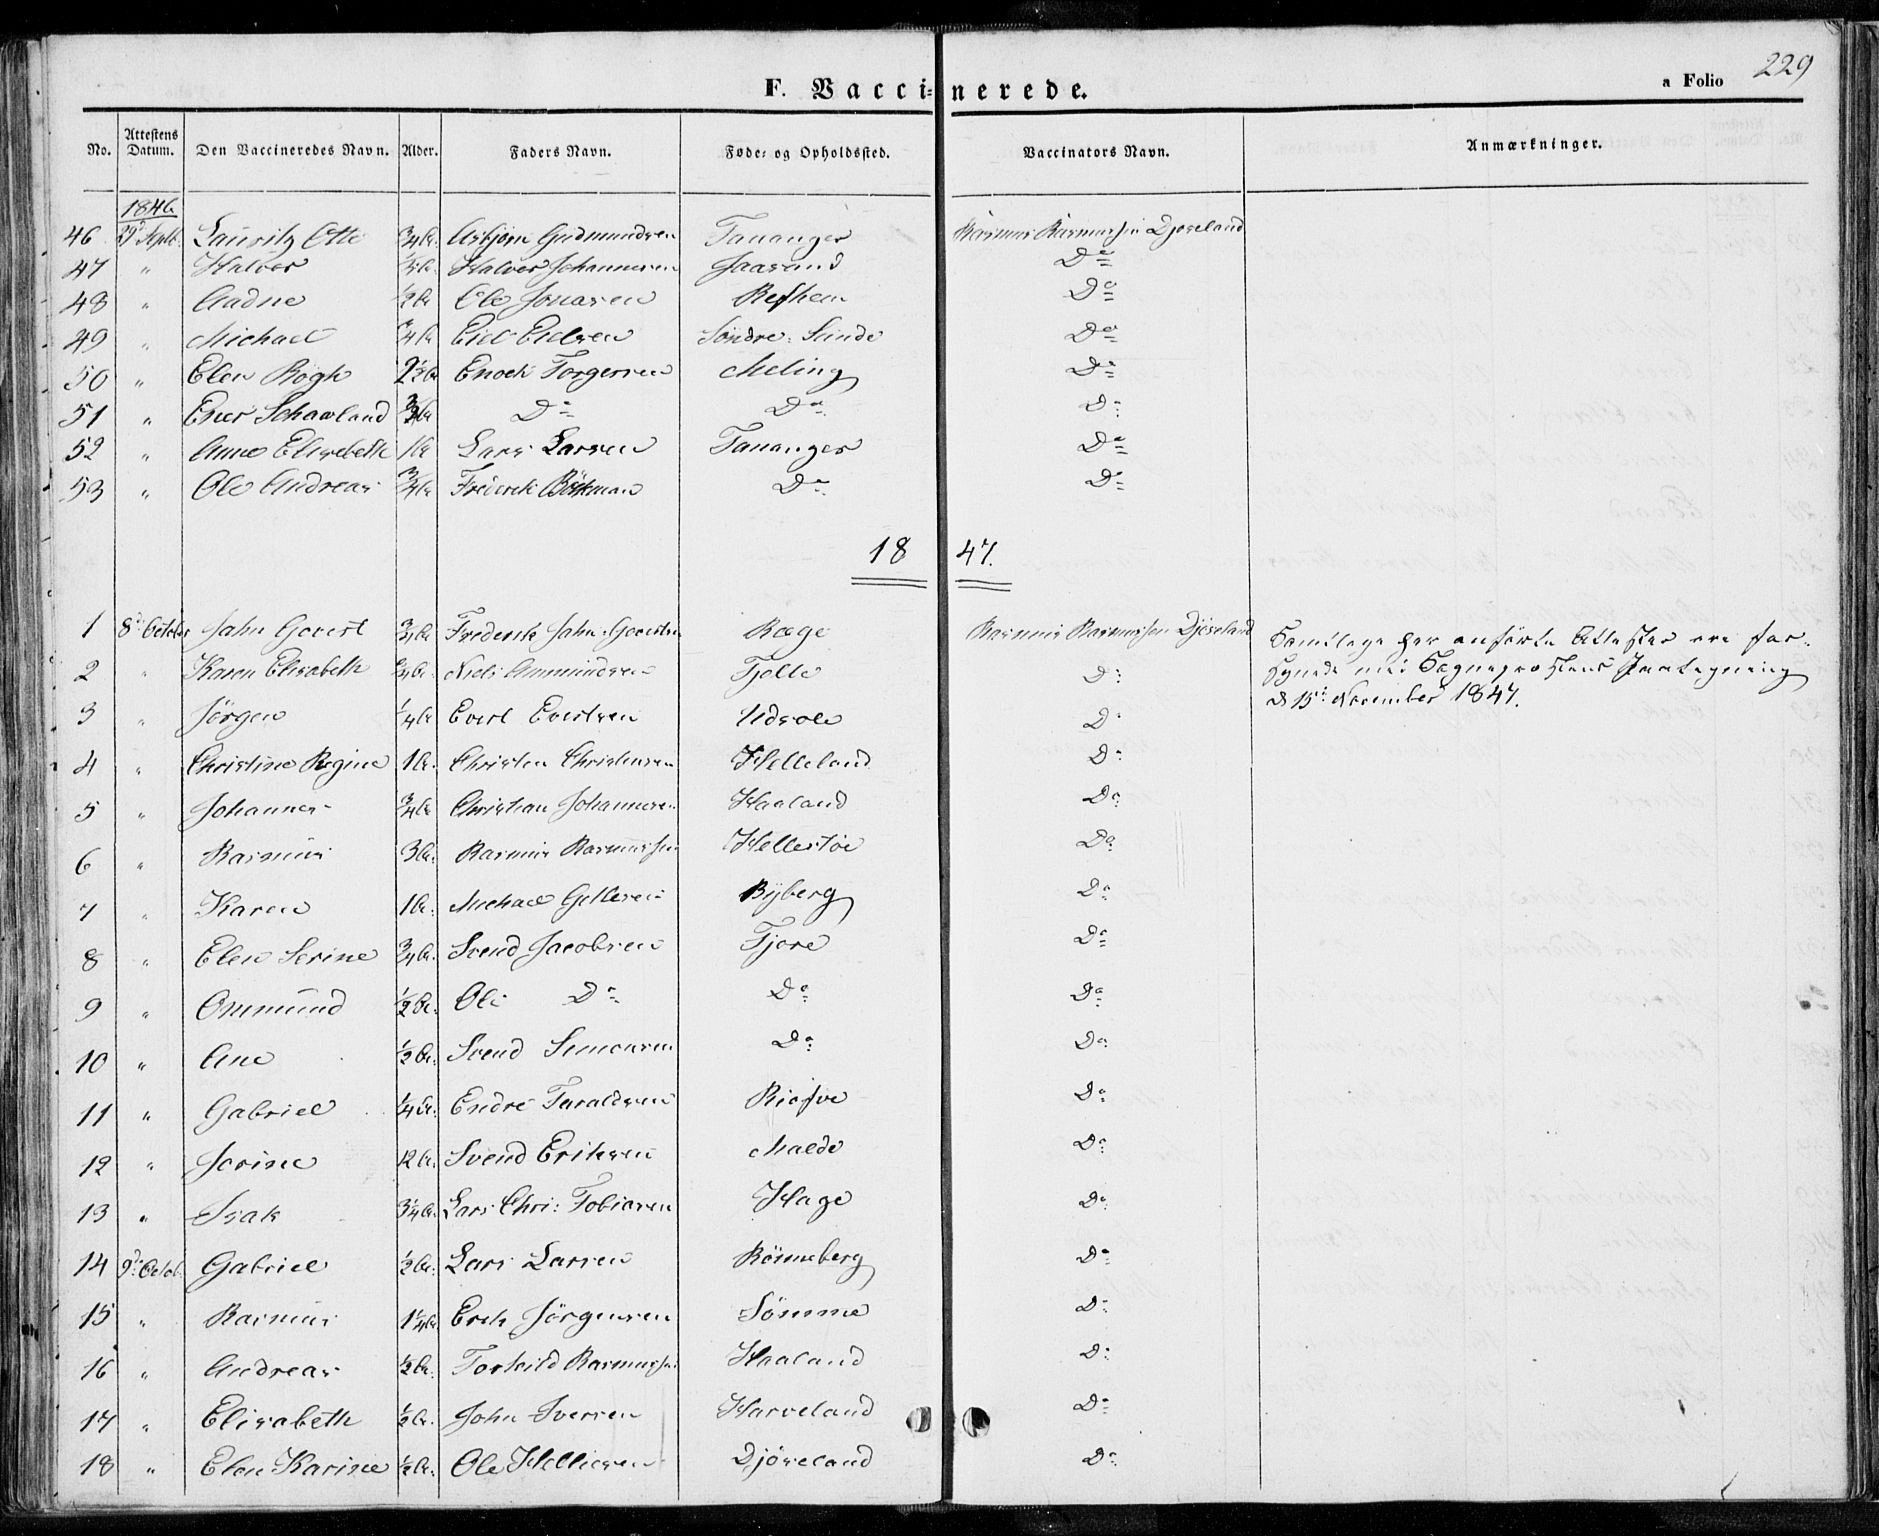 229
F. Vaccinerede. a Folio
No. Attestens Datum. Den Vaccineredes Navn. Alder. Faders Navn. Føde- og Opholdssted. Vaccinators Navn. Anmærkninger.
1846
46 29d Septb. Lauritz Otto 3/4 Aar Asbjørn Gudmundsen Tananger Rasmus Rasmussen Djøseland
47 " Halvor Halvor Johannesen Jaasund Do
48 " Aadne 1/2 Aar Ole Jonasen Refhem Do
49 " Michael 3/4 Aar Eiel Eielsen Søndre Sunde Do
50 " Elen Rogh 2 1/2 Aar Enoch Torgersen Meling Do
51 " Ener Schaaland 3/4 Aar Do Do Do
52 " Anne Elisabeth 1 Aar Lars Larsen Tananger Do
53 " Ole Andreas 3/4 Aar Frederik Böckman Do Do
1847.
1 8d October Jahn Goerst 3/4 Aar Frederik Jahn Goerstsen Ræge Rasmus Rasmussen Djøseland Samtlige her anførte Attester ere for-
2 " Karen Elisabeth 3/4 Aar Niels Ommundsen Tjelle Do synede med Sognepræstens Paategning
3 " Jørgen 1/4 Aar Evert Evertsen Udsole Do D 15de November 1847.
4 " Christine Regine 1 Aar Christen Christensen Helleland Do
5 " Johannes 3/4 Aar Christian Johannesen Haaland Do
6 " Rasmus 3 Aar Rasmus Rasmussen Hellestøe Do
7 " Karen 1 Aar Michael Byberg Do
8 " Elen Serine 3/4 Aar Svend Jacobsen Tjore Do
9 " Ommund 1/2 Aar Ole Do Do Do
10 " Ane 1/2 Aar Svend Simonsen Do Do
11 " Gabriel 1/4 Aar Endre Taraldsen Risfve Do
12 " Serine 12 Aar Svend Eriksen Malde Do
13 " Isak 3/4 Aar Lars Chri: Tobiasen Hage Do
14 9d Octob. Gabriel 1/2 Aar Lars Larsen Rönneberg Do
15 " Rasmus 1 1/4 Aar Erik Jørgensen Sömme Do
16 " Andreas 1/2 Aar Torkild Rasmussen Haaland Do
17 " Elisabeth 1/2 Aar John Iversen Harveland Do
18 " Elen Karine 1/2 Aar Ole Helliesen Djøseland Do